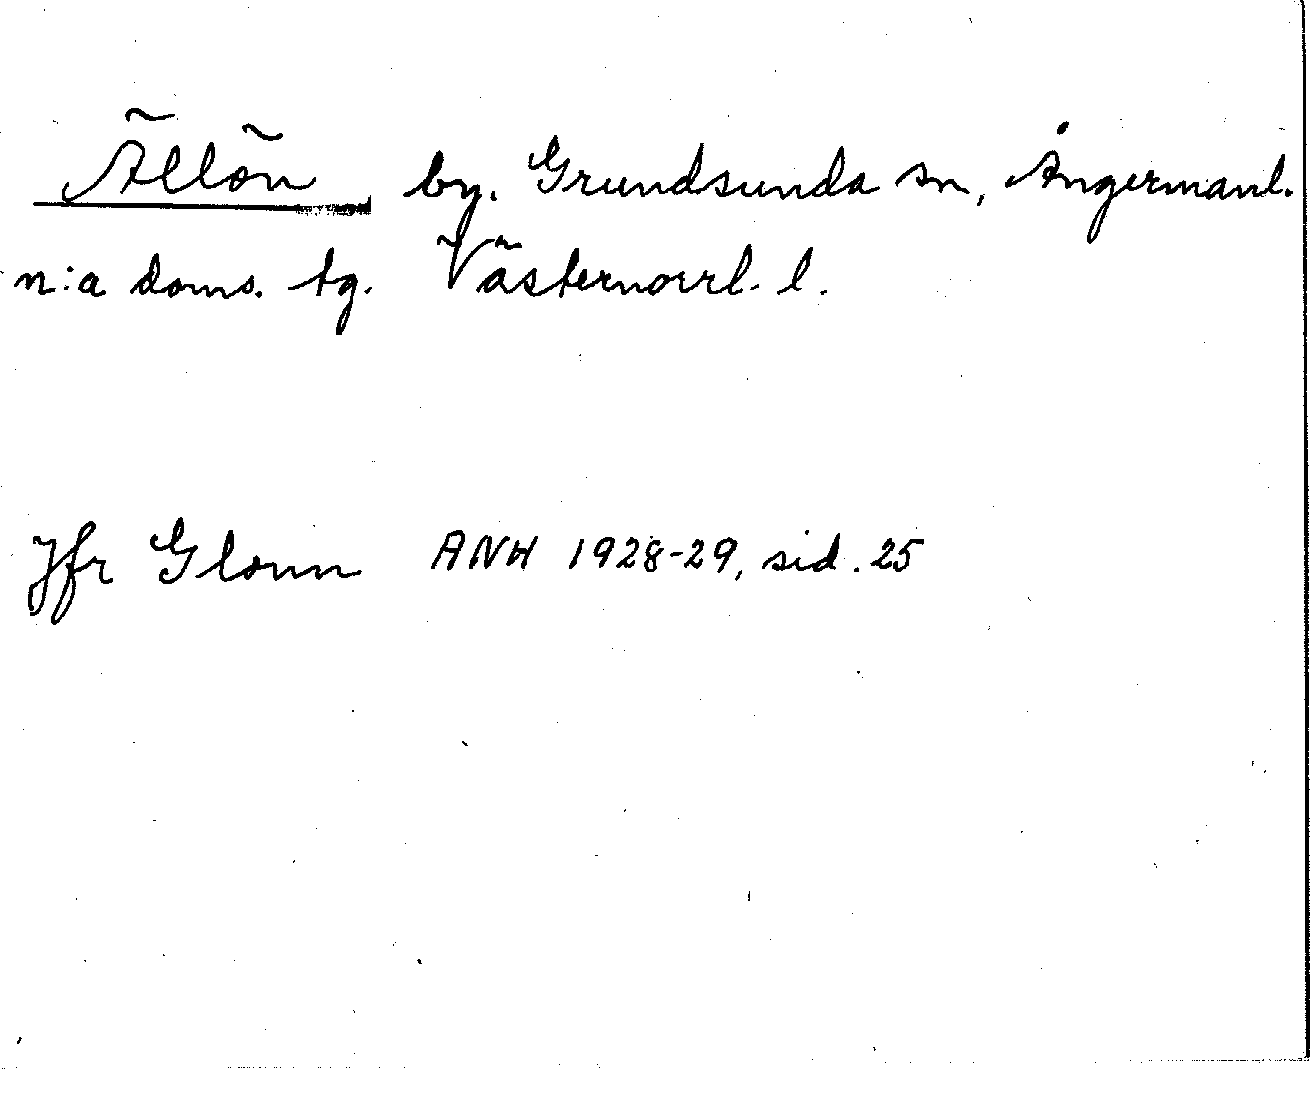 Ällön by. Grundsunda sn, Ångermanl.
n:a doms. tg. Västernorrl. l.
Jfr Glonn ANH 1928-29, sid. 25